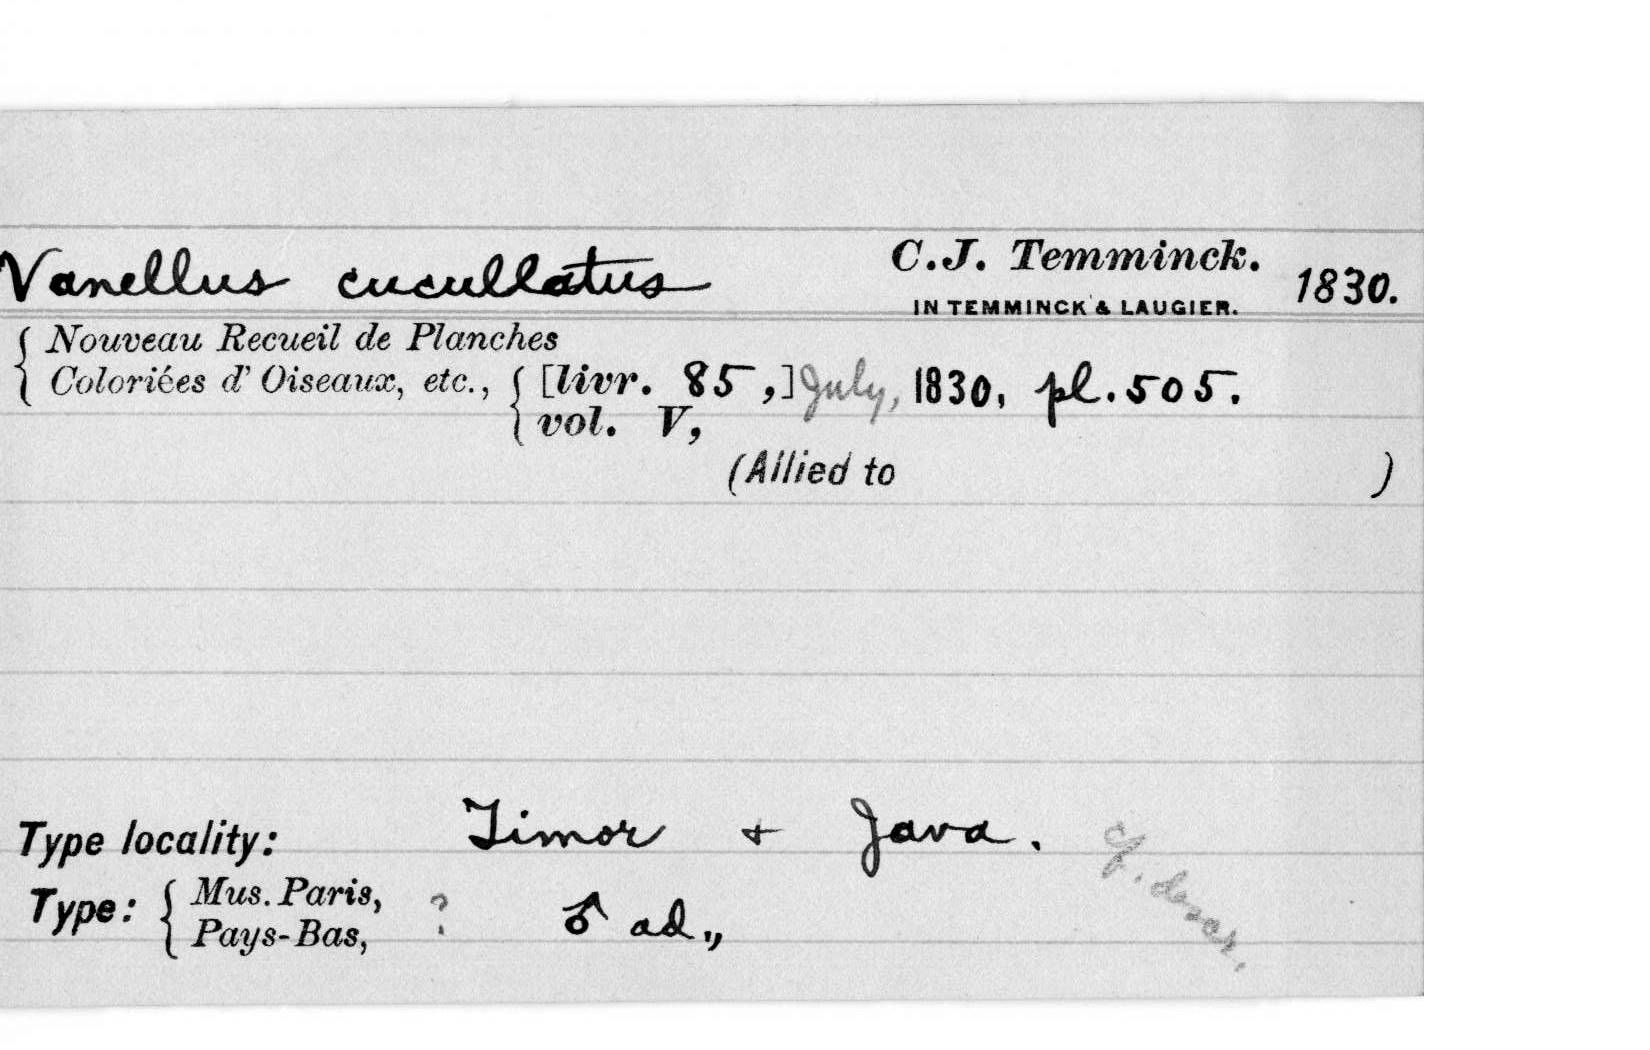 Vanellus cucullatus C.J. Temminck. 1830.
IN TEMMINCK & LAUGIER.
{ Nouveau Recueil de Planches
Coloriées d' Oiseaux, etc., { [livr. 85,] July, 1830, pl. 505.
vol. V,
(Allied to )
Type locality: Timor + Java. cf. descr.
Type: { Mus. Paris, ? ♂ ad.,,
Pays-Bas,